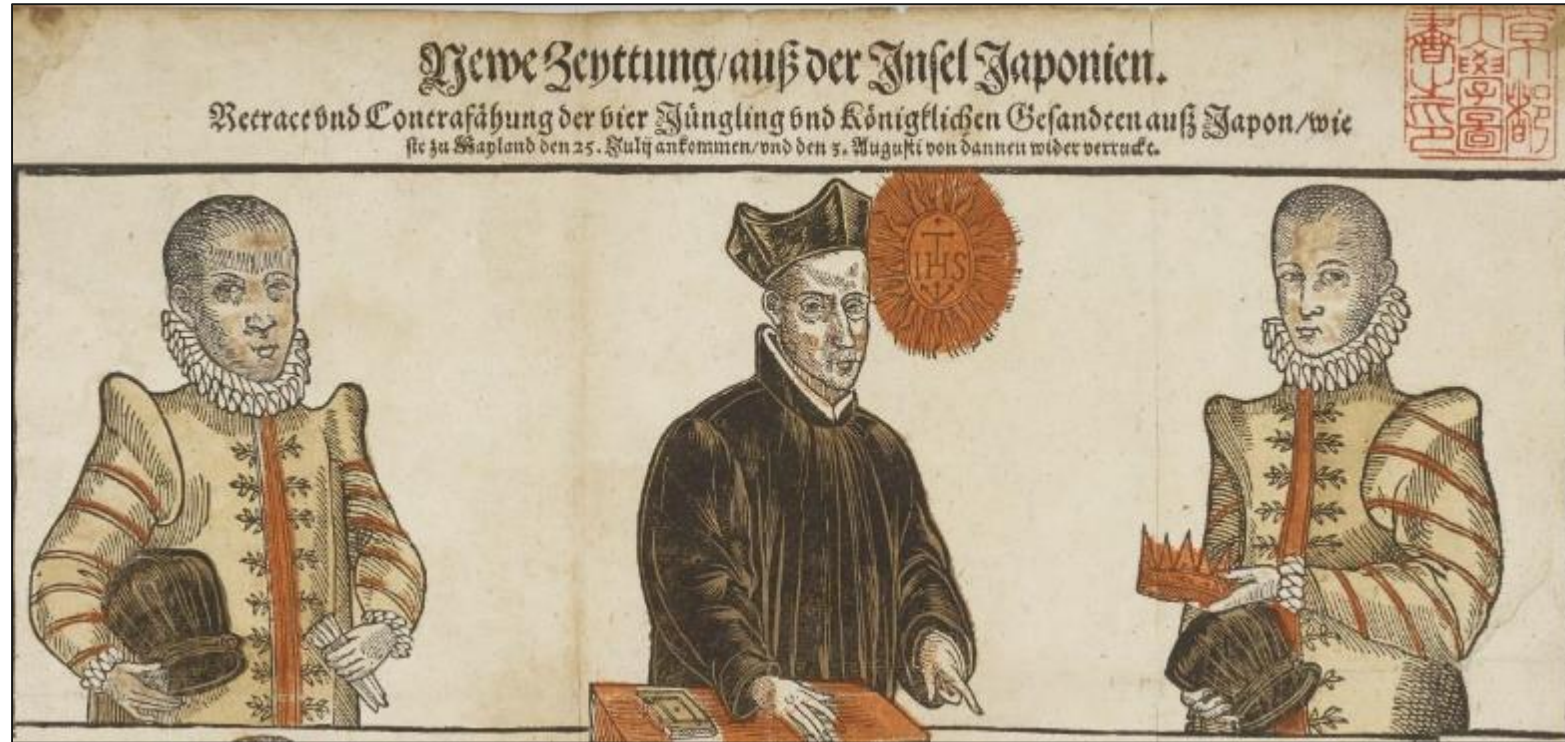 Newe Zeyttung/auß der Insel Japonien.
Retract vnd Contrafähung der vier Jüngling vnd Königklichen Gesandten auß Japon/wie
sie zu Mayland den 25. Julij ankommen/vnd den 3. Augusti von dannen wider verruckt.
京都
大學圖
書之印
IHS